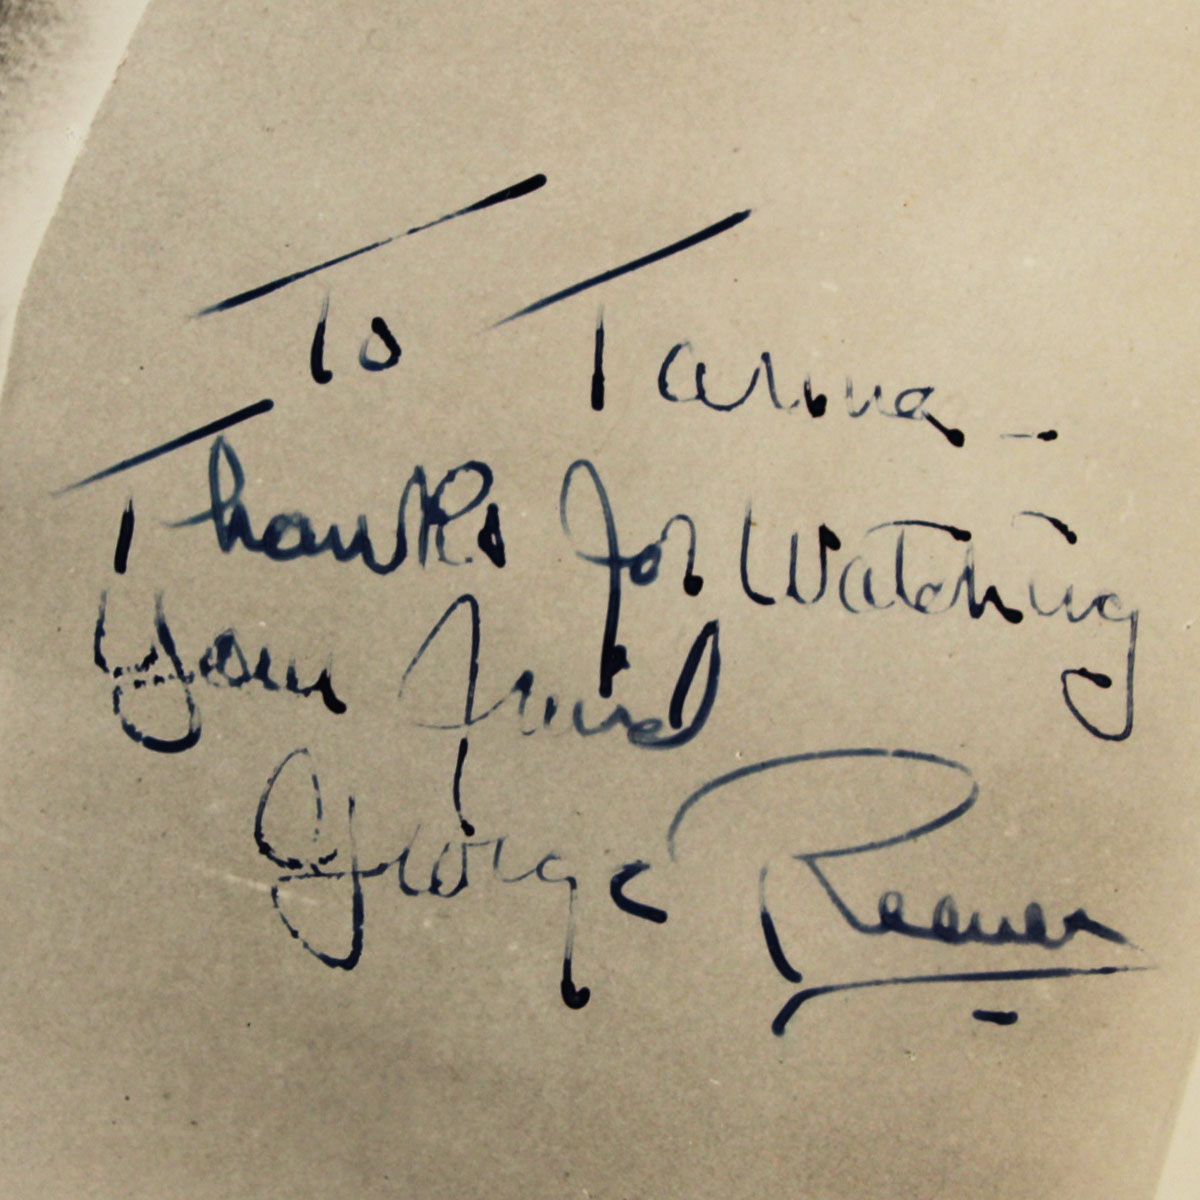 To Tarina –
Thanks for Watching
Your friend
George Reeves